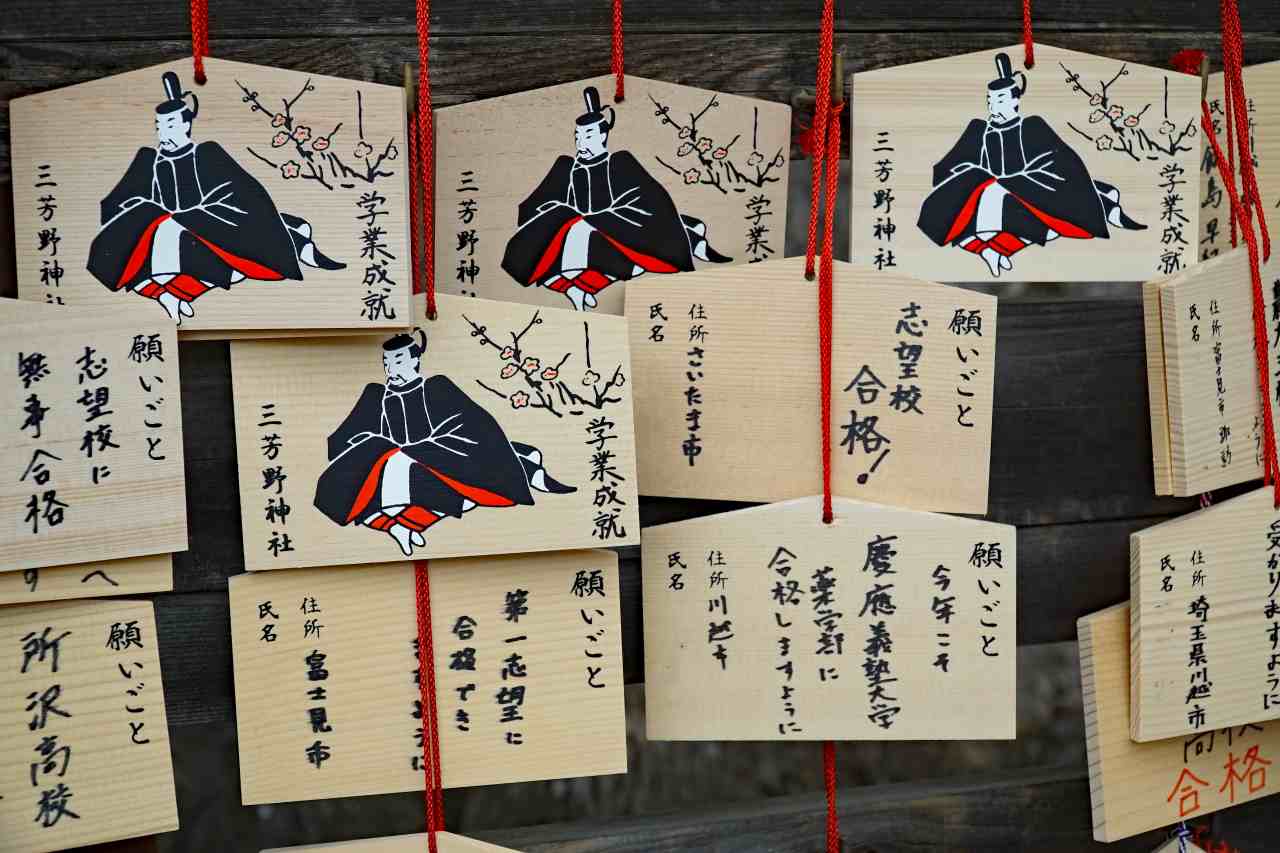 学業成就
三芳野神社
学業成就
三芳野神
学業成就
三芳野神社
願いごと
志望校に
無事合格
願いごと
所沢高校
学業成就
三芳野神社
願いごと
第一志望に
合格でき
住所 富士見市
氏名
願いごと
志望校
合格!
住所 さいたま市
氏名
願いごと
今年こそ
慶應義塾大学
薬学部に
合格しますように
住所 川越市
氏名
住所
氏名
住所 富士見市
氏名
受かりますように
住所 埼玉県川越市
氏名
合格